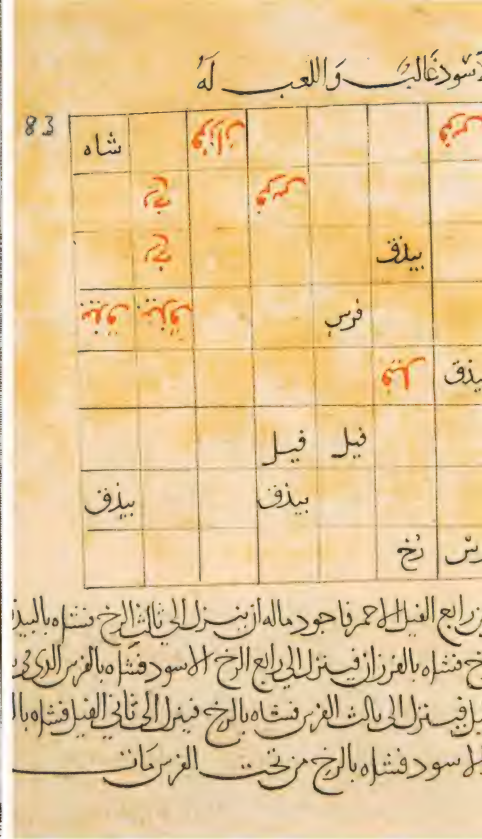 لاسود غالب واللعب له
83
شاه فرزان فرس
رخ فرس
رخ بيذق
بيذق بيذق فرس
فيل بيذق
فيل فيل
بيذق بيذق
رخ
رابع الفيل الاحمر فاجود ماله ان ينزل الى ثالث الرخ فشاه
فشاه بالفرزان فينزل الى رابع الرخ الاسود فشاه بالفرس الذي
فينزل الى ثالث الفرس فشاه بالرخ فينزل الى ثاني الفيل فشاه
الاسود فشاه بالرخ من تحت الفرس مات